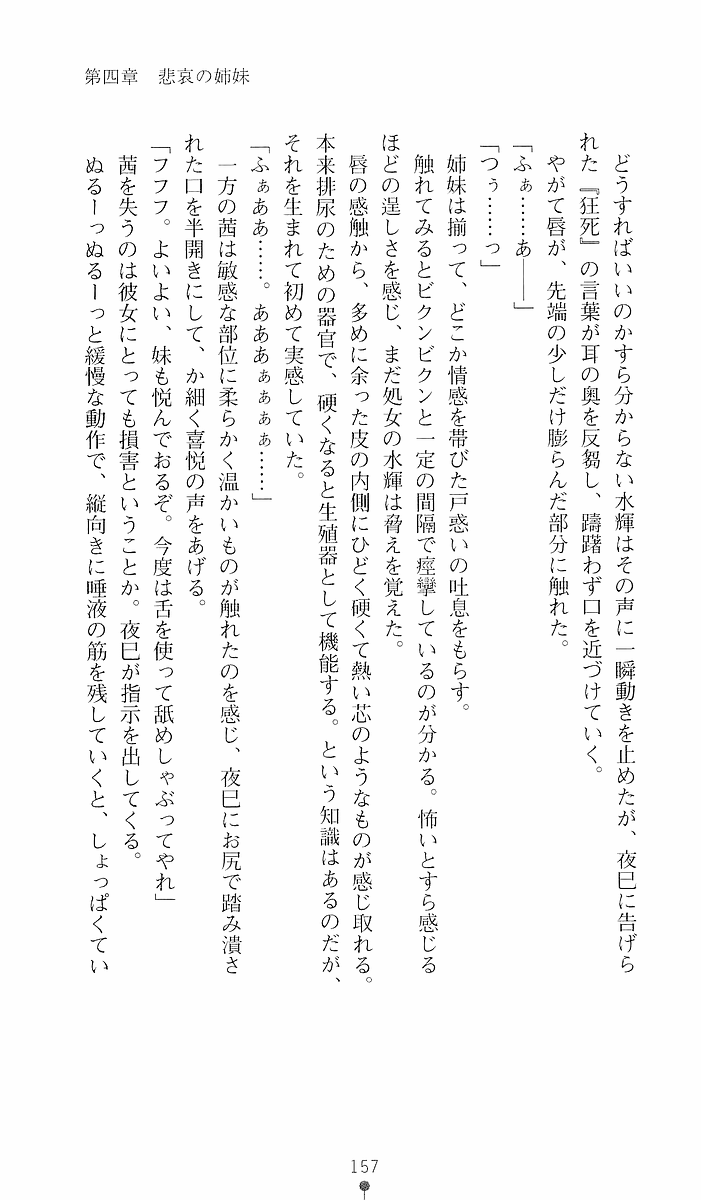 第四章　悲哀の姉妹
どうすればいいのかすら分からない水輝はその声に一瞬動きを止めたが、夜巳に告げら
れた『狂死』の言葉が耳の奥を反芻し、躊躇わず口を近づけていく。
やがて唇が、先端の少しだけ膨らんだ部分に触れた。
「ふぁ……あ――」
「つぅ……っ」
姉妹は揃って、どこか情感を帯びた戸惑いの吐息をもらす。
触れてみるとビクンビクンと一定の間隔で痙攣しているのが分かる。怖いとすら感じる
ほどの逞しさを感じ、まだ処女の水輝は脅えを覚えた。
唇の感触から、多めに余った皮の内側にひどく硬くて熱い芯のようなものが感じ取れる。
本来排尿のための器官で、硬くなると生殖器として機能する。という知識はあるのだが、
それを生まれて初めて実感していた。
「ふぁああ……。あああぁぁぁぁ……」
一方の茜は敏感な部位に柔らかく温かいものが触れたのを感じ、夜巳にお尻で踏み潰さ
れた口を半開きにして、か細く喜悦の声をあげる。
「フフフ。よいよい、妹も悦んでおるぞ。今度は舌を使って舐めしゃぶってやれ」
茜を失うのは彼女にとっても損害ということか。夜巳が指示を出してくる。
ぬるーっぬるーっと緩慢な動作で、縦向きに唾液の筋を残していくと、しょっぱくてい
157